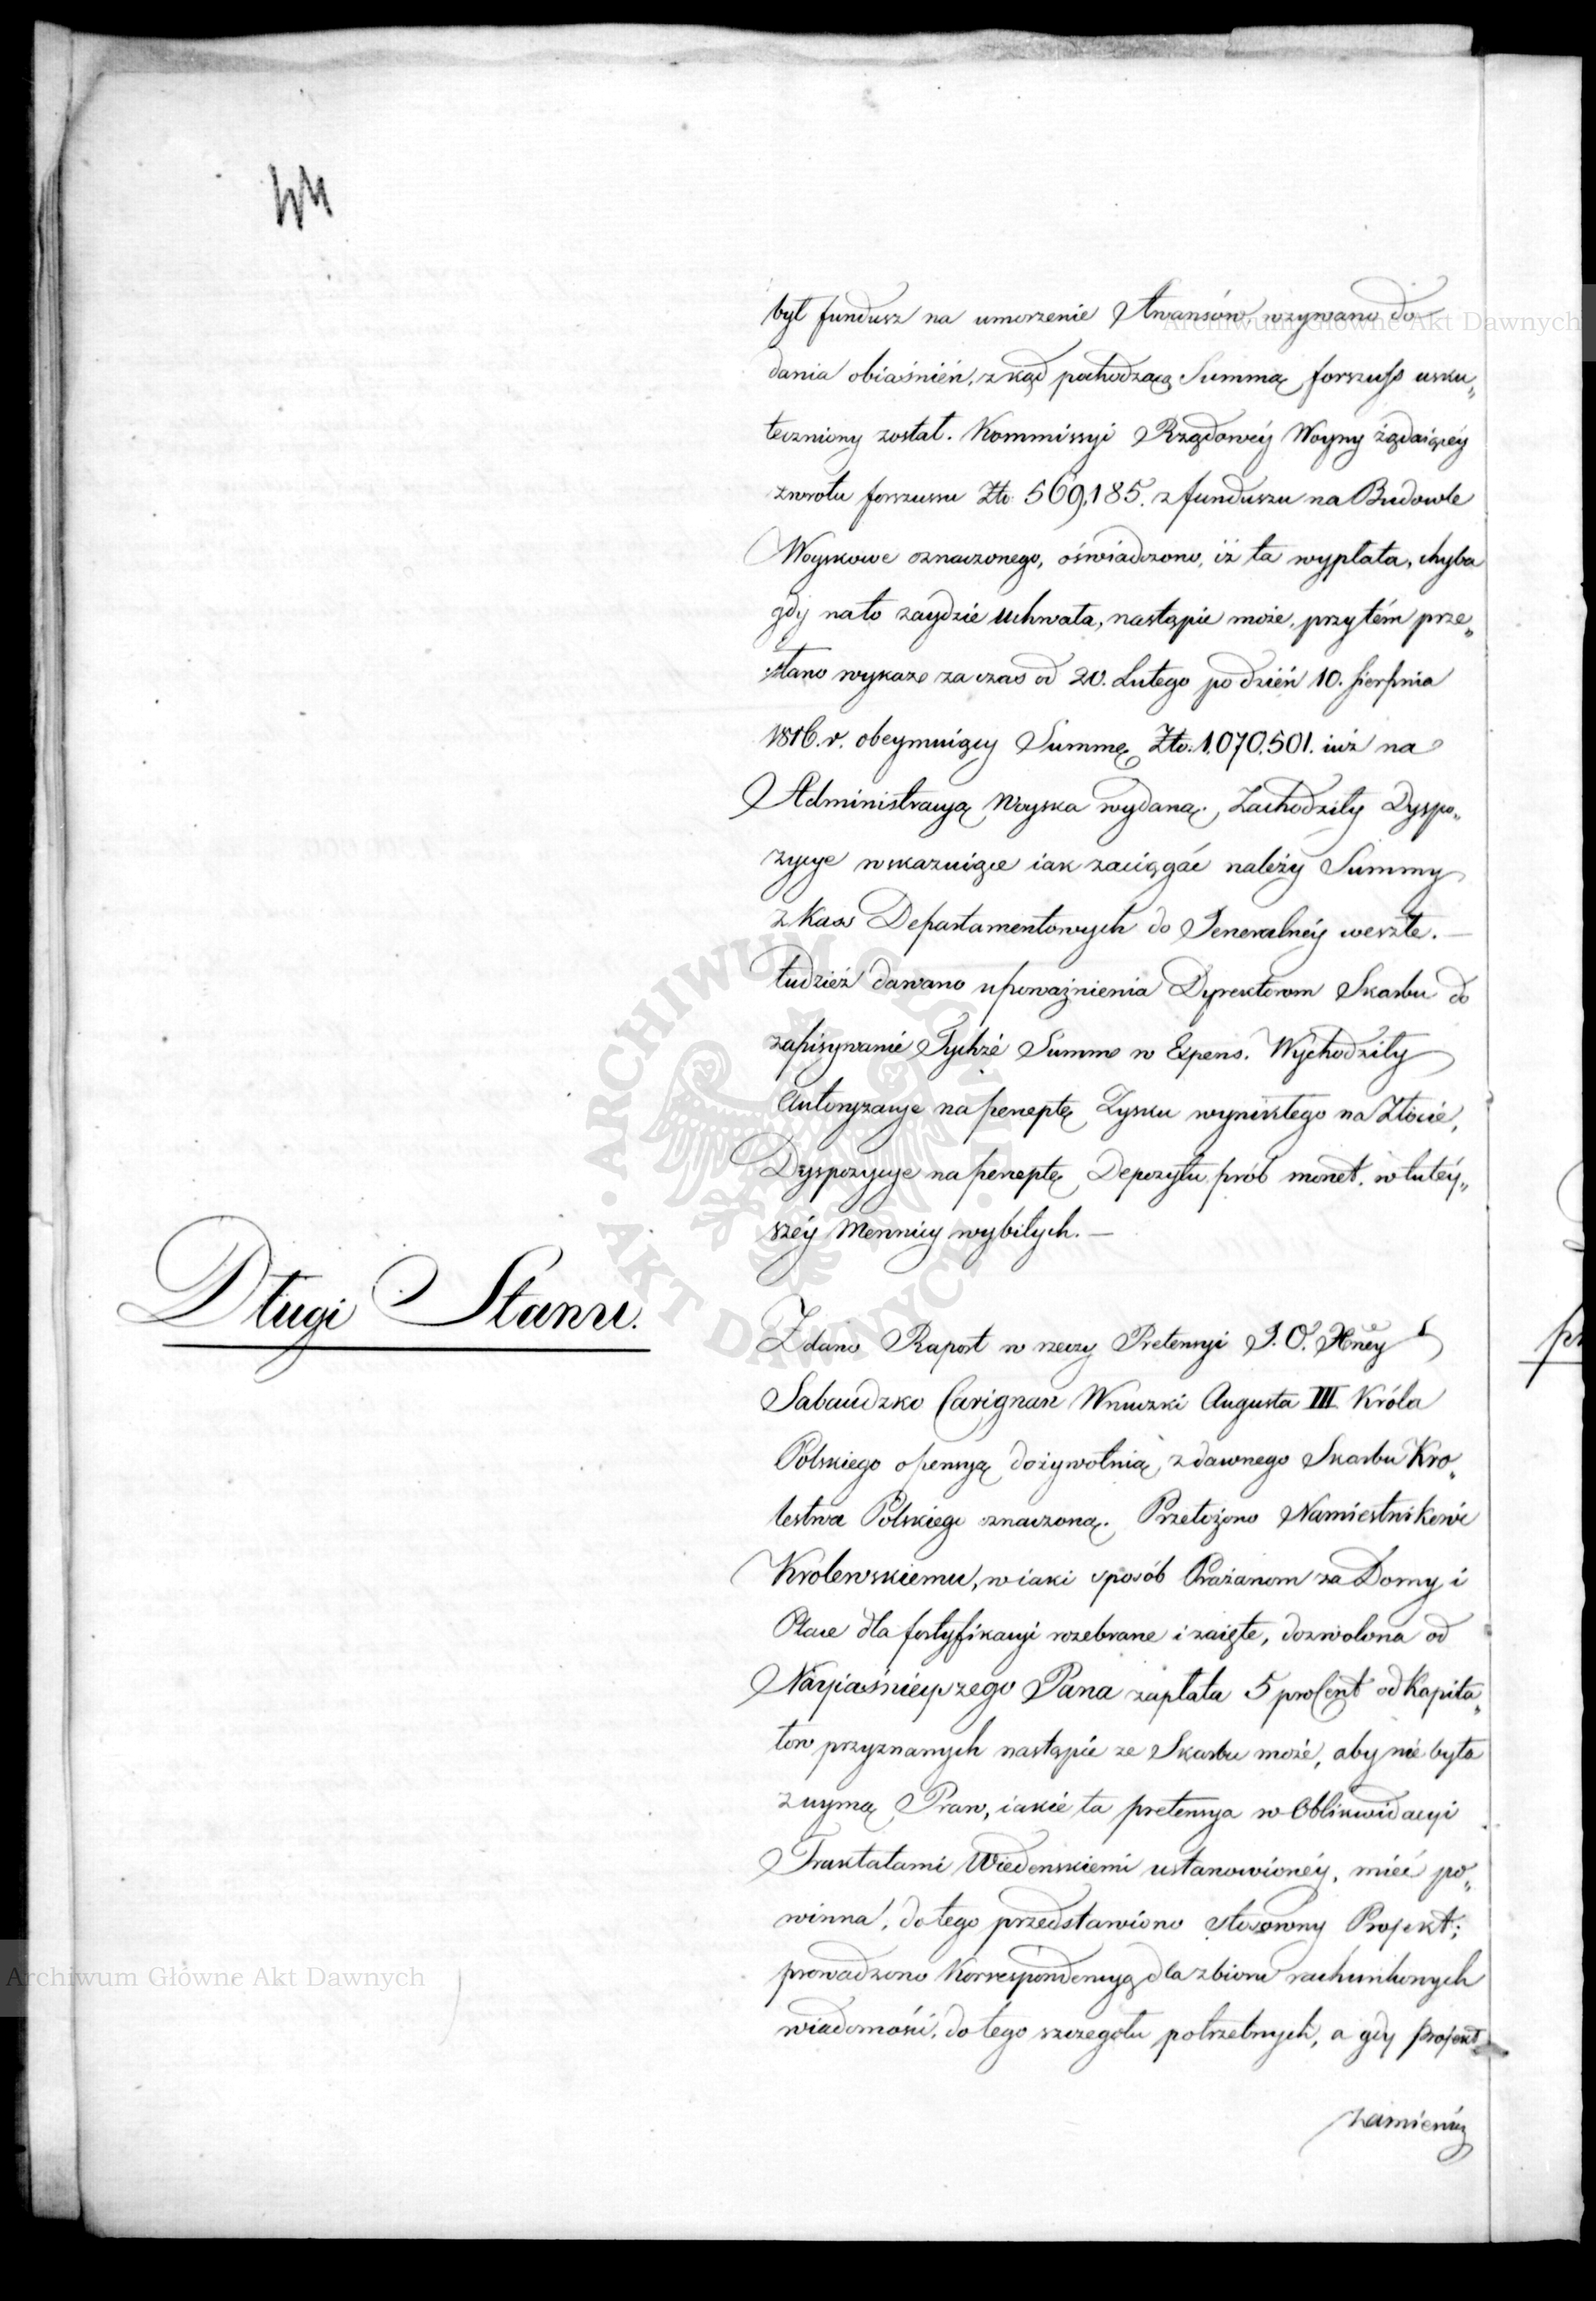 44
był fundusz na umorzenie Awansów, wzywano do
dania obiaśnień, zkąd pochodzącą Summą forszuss usku„
teczniony został. Kommissyi Rządowéy Woyny żądaiącéy
zwrotu forszussu Zło 569,185. z funduszu na Budowle
Woyskowe oznaczonego, oświadczono, iż ta wypłata, chyba
gdy na to zaydzie uchwała, nastąpić może, przytém prze„
słano wykaz za czas od 20. Lutego po dzień 10. Sierpnia
1816. r. obeymuiący Summę Zło. 1,070,501. iuż na
Administracyą Woyska wydaną. Zachodziły Dyspo„
zycye wskazuiące iak zaciągać należy Summy
z Kass Departamentowych do Generalnéy weszłe. —
tudzież dawano upoważnienia Dyrektorom Skarbu do
zapisywanie Tychże Summ w Expens. Wychodziły
Autoryzacye na perceptę Zysku wynikłego na Złocie,
Dyspozycye na perceptę Depozytu prób monet. w tutéy„
széy Mennicy wybitych. —
Długi Stanu.
Zdano Raport w rzeczy Pretensyi J. O. Xney
Sabaudzko Carignan Wnuczki Augusta III Króla
Polskiego o pensyą dożywotnią, z dawnego Skarbu Kro„
lestwa Polskiego oznaczoną. Przełożono Namiestnikowi
Królewskiemu, w iaki sposób Prażanom za Domy i
Place dla fortyfikacyi rozebrane i zaięte, dozwolona od
Nayiaśnieyszego Pana zapłata 5 procent od Kapita„
łow przyznanych nastąpić ze Skarbu może, aby nie była
z uymą Praw, iakie ta pretensya w Oblikwidacyi
Traktatami Wiedenskiemi ustanowionéy, mieć po„
winna, do tego przedstawiono stosowny Projekt;
prowadzono Korrespondencyą dla zbioru rachunkowych
wiadomości, do tego szczegołu potrzebnych, a gdy projekt
zamienią
Archiwum Główne Akt Dawnych
Archiwum Główne Akt Dawnych
ARCHIWUM GŁÓWNE AKT DAWNYCH